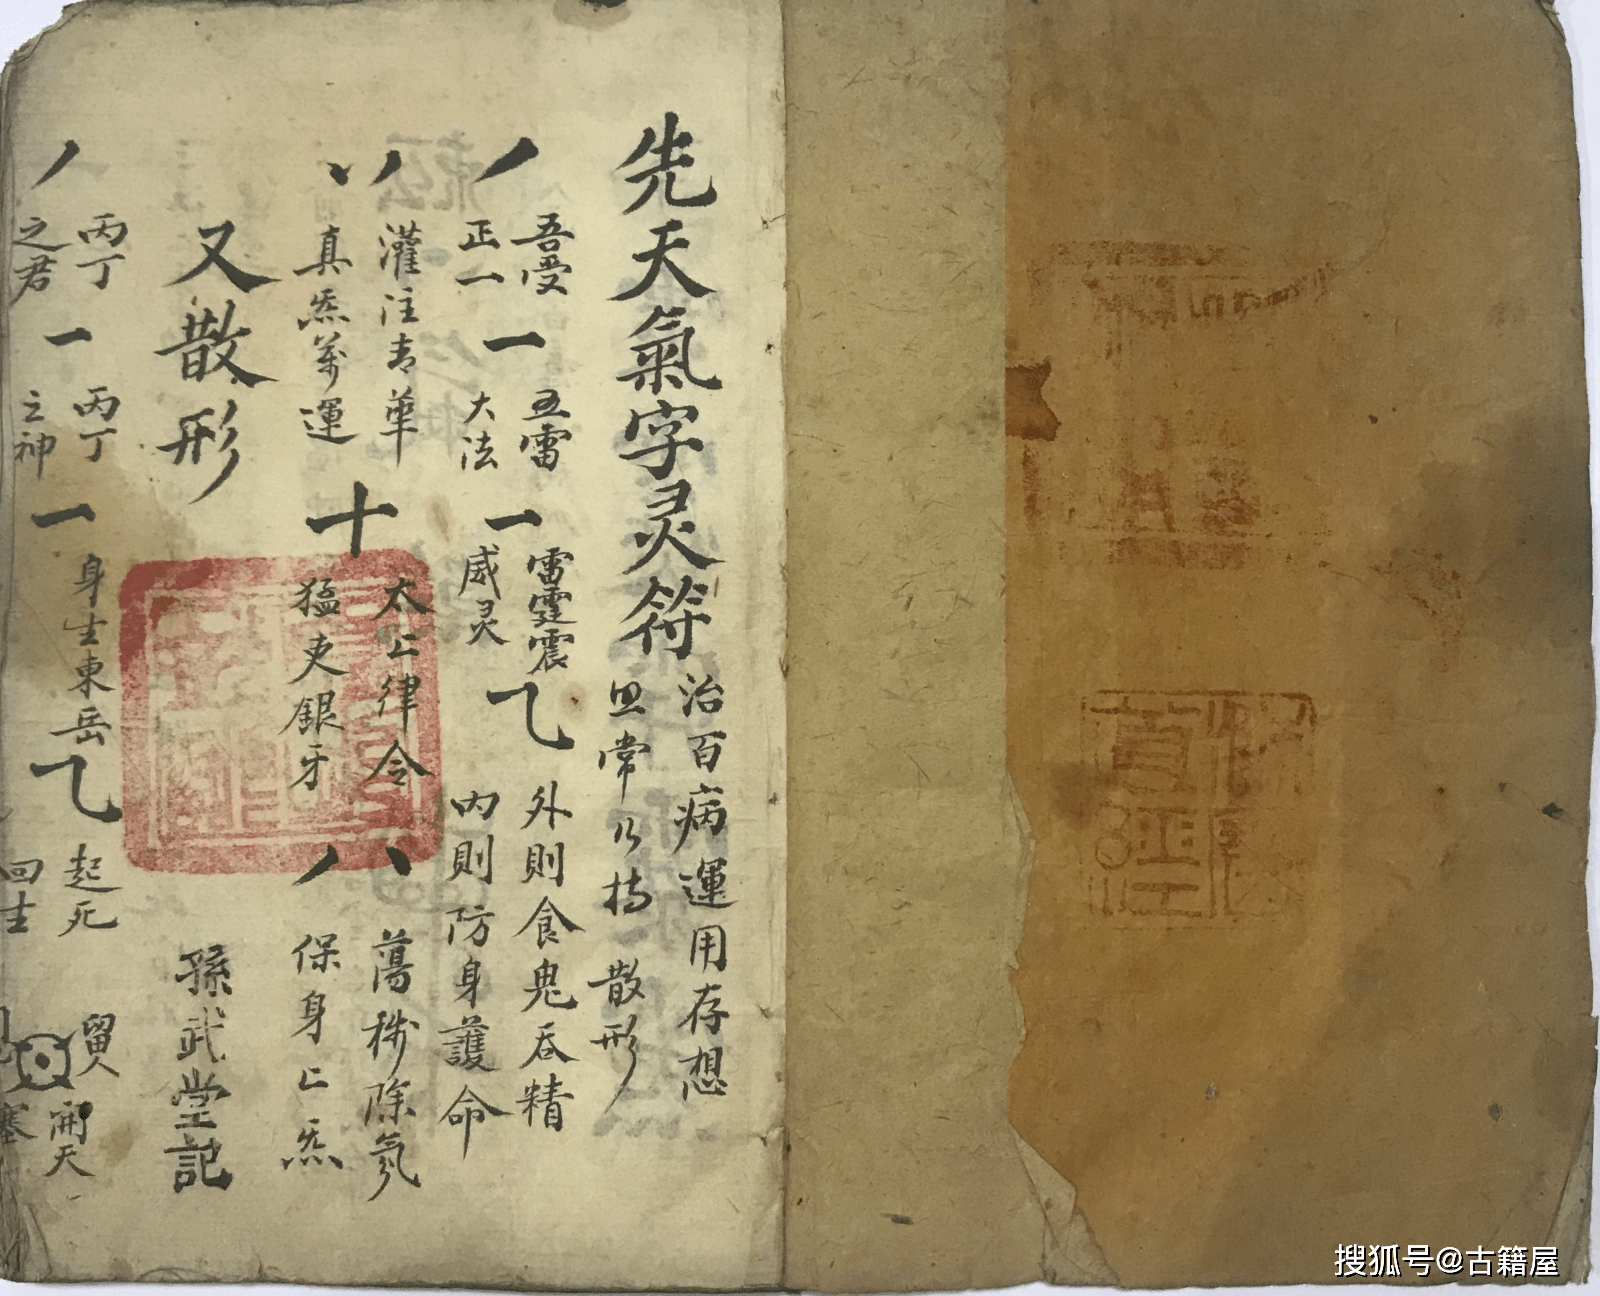 先天氣字灵符
治百病運用存想
照常乃持散形
丿
吾受
正一
一
五雷
大法
一
雷霆震
威灵
乙
外則食鬼吞精
内則防身護命
丷
灌注青華
真炁萬運
十
太上律令
猛吏銀牙
八
蕩穢除氛
保身上炁
又散形
孫武堂記
丿
丙丁
之君
一
丙丁
之神
一
身生東岳
乙
起死
回生
留人
開天
塞
搜狐号@古籍屋